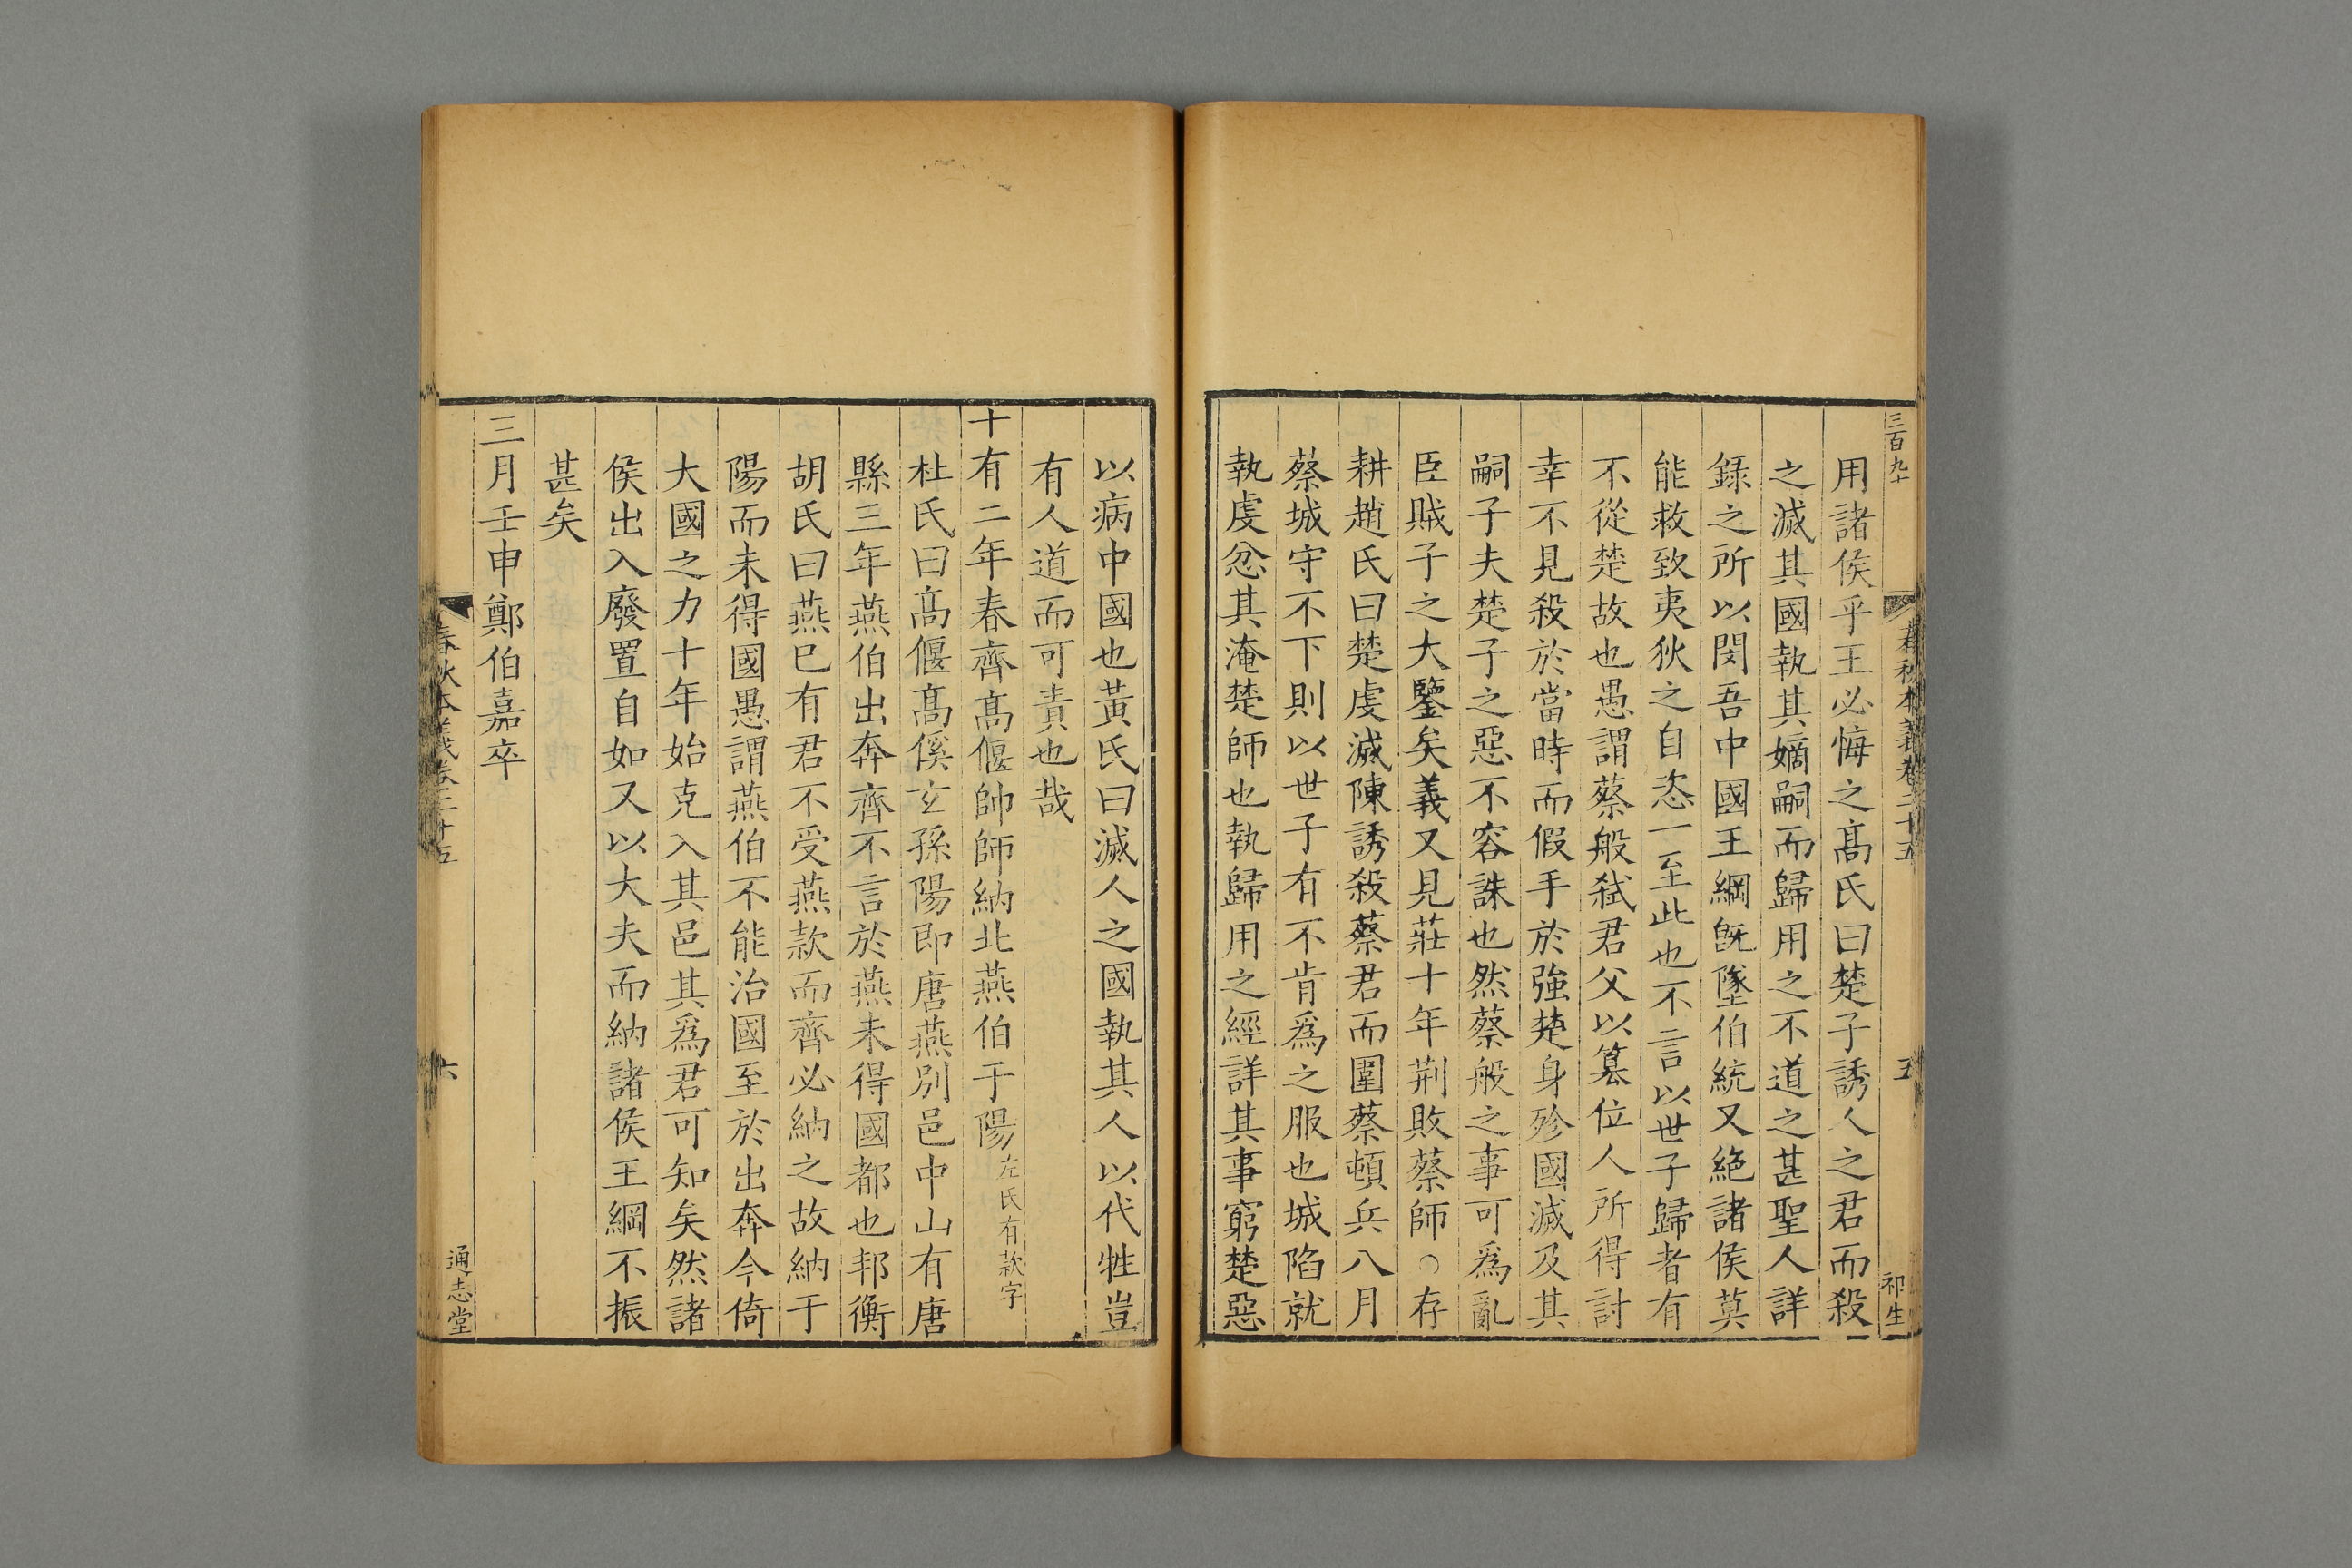 三百九十
春秋本義卷二十五
五
祁生
用諸侯乎王必悔之髙氏曰楚子誘人之君而殺
之滅其國執其嫡嗣而歸用之不道之甚聖人詳
錄之所以閔吾中國王綱旣墜伯統又絶諸侯莫
能救致夷狄之自恣一至此也不言以世子歸者有
不從楚故也愚謂蔡般弑君父以簒位人所得討
幸不見殺於當時而假手於強楚身殄國滅及其
嗣子夫楚子之惡不容誅也然蔡般之事可爲亂
臣賊子之大鑒矣義又見莊十年荆敗蔡師○存
耕趙氏曰楚虔滅陳誘殺蔡君而圍蔡頓兵八月
蔡城守不下則以世子有不肯爲之服也城陷就
執虔忿其淹楚師也執歸用之經詳其事窮楚惡
以病中國也黃氏曰滅人之國執其人以代牲豈
有人道而可責也哉
十有二年春齊髙偃帥師納北燕伯于陽左氏有款字
杜氏曰髙偃髙傒玄孫陽即唐燕別邑中山有唐
縣三年燕伯出奔齊不言於燕未得國都也邦衡
胡氏曰燕已有君不受燕款而齊必納之故納于
陽而未得國愚謂燕伯不能治國至於出奔今倚
大國之力十年始克入其邑其爲君可知矣然諸
侯出入廢置自如又以大夫而納諸侯王綱不振
甚矣
三月壬申鄭伯嘉卒
春秋本義卷二十五
六
通志堂